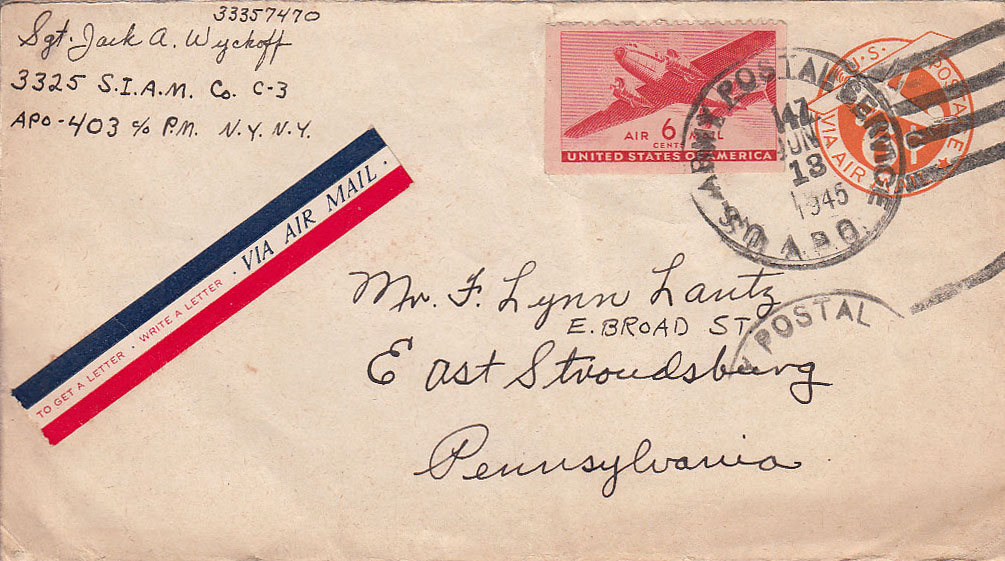 33357470
Sgt. Jack A. Wyckoff
3325 S.I.A.M. Co. C-3
APO-403 c/o P.M. N.Y. N.Y.
AIR 6 MAIL
CENTS
UNITED STATES OF AMERICA
U.S. POSTAGE
VIA AIR MAIL
ARMY POSTAL SERVICE
JUN
13
1945
A.P.O.
· VIA AIR MAIL ·
TO GET A LETTER · WRITE A LETTER
Mr. F. Lynn Lantz
E. BROAD ST
East Stroudsburg
Pennsylvania
POSTAL